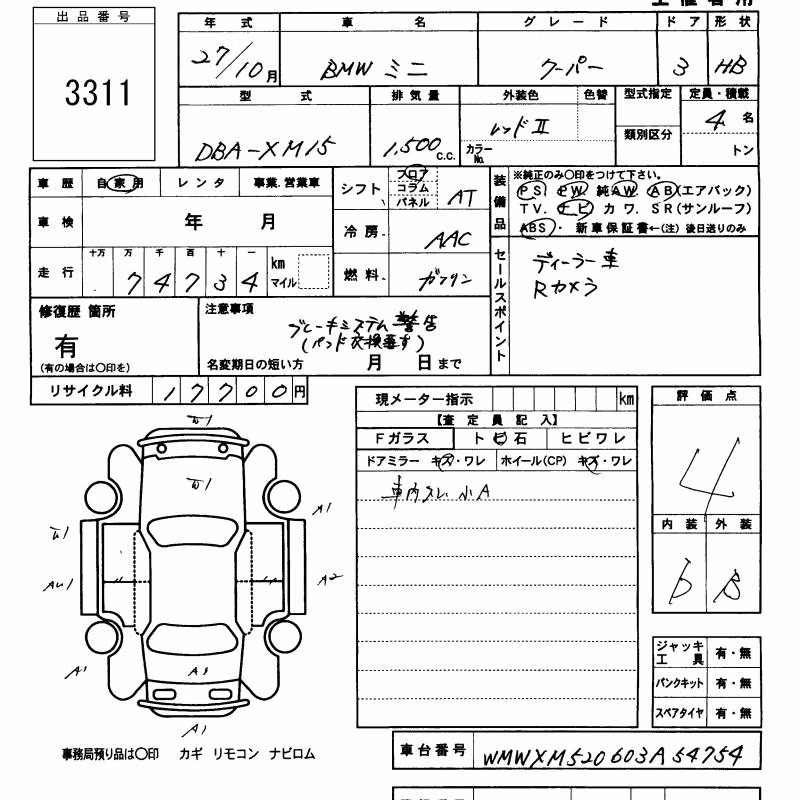 出品番号
3311
年式 車名 グレード ドア 形状
27/10月 BMW ミニ クーパー 3 HB
型式 排気量 外装色 色替 型式指定 定員・積載
DBA-XM15 1,500 C.C. レッドII カラーNo. 類別区分 4名
トン
車歴 自家用 レンタ 事業.営業車
シフト フロア コラム パネル AT
装備品 ※純正のみ○印をつけて下さい。
PS PW 純AW. AB(エアバック)
TV. ナビ カワ. SR(サンルーフ)
ABS・ 新車保証書←(注)後日送りのみ
車検 年 月
冷房 AAC
走行 十万 万 千 百 十 一
74734 km マイル
燃料 ガソリン
セールスポイント
ディーラー車
Rカメラ
修復歴 箇所
有
(有の場合は○印を)
注意事項
ブレーキシステム警告
(パッド交換要す)
名変期日の短い方 月 日まで
リサイクル料 17700円
現メーター指示 km
【査定員記入】
Fガラス トビ石 ヒビワレ
ドアミラー キズ・ワレ ホイール(CP) キズ・ワレ
車内スレ 小A
評価点
4
内装 外装
b B
A1
A2
A1
A1
A1
ジャッキ工具 有・無
パンクキット 有・無
スペアタイヤ 有・無
事務局預り品は○印 カギ リモコン ナビロム
車台番号 WMWXM520603A54754